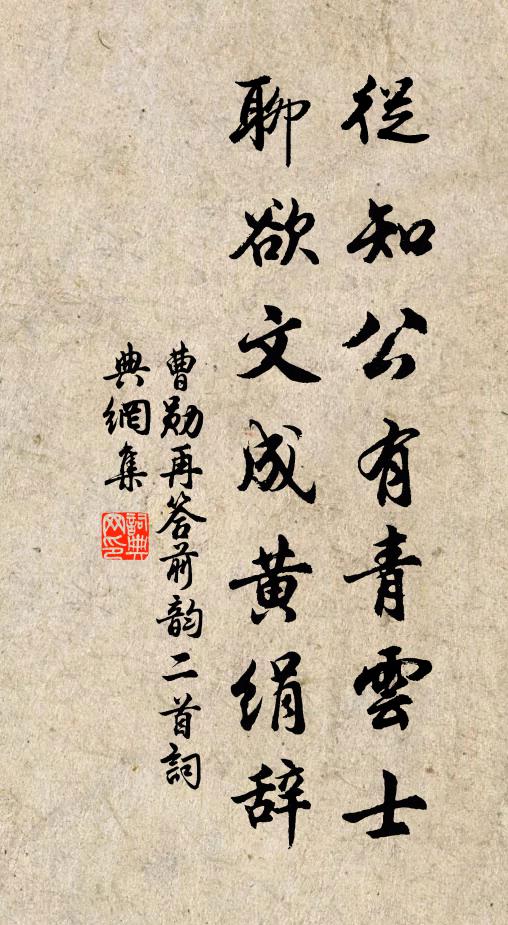 從知公有青雲士
聊欲文成黄绢辞
曹勋再答前韵二首詞
典網集
詞典
网印